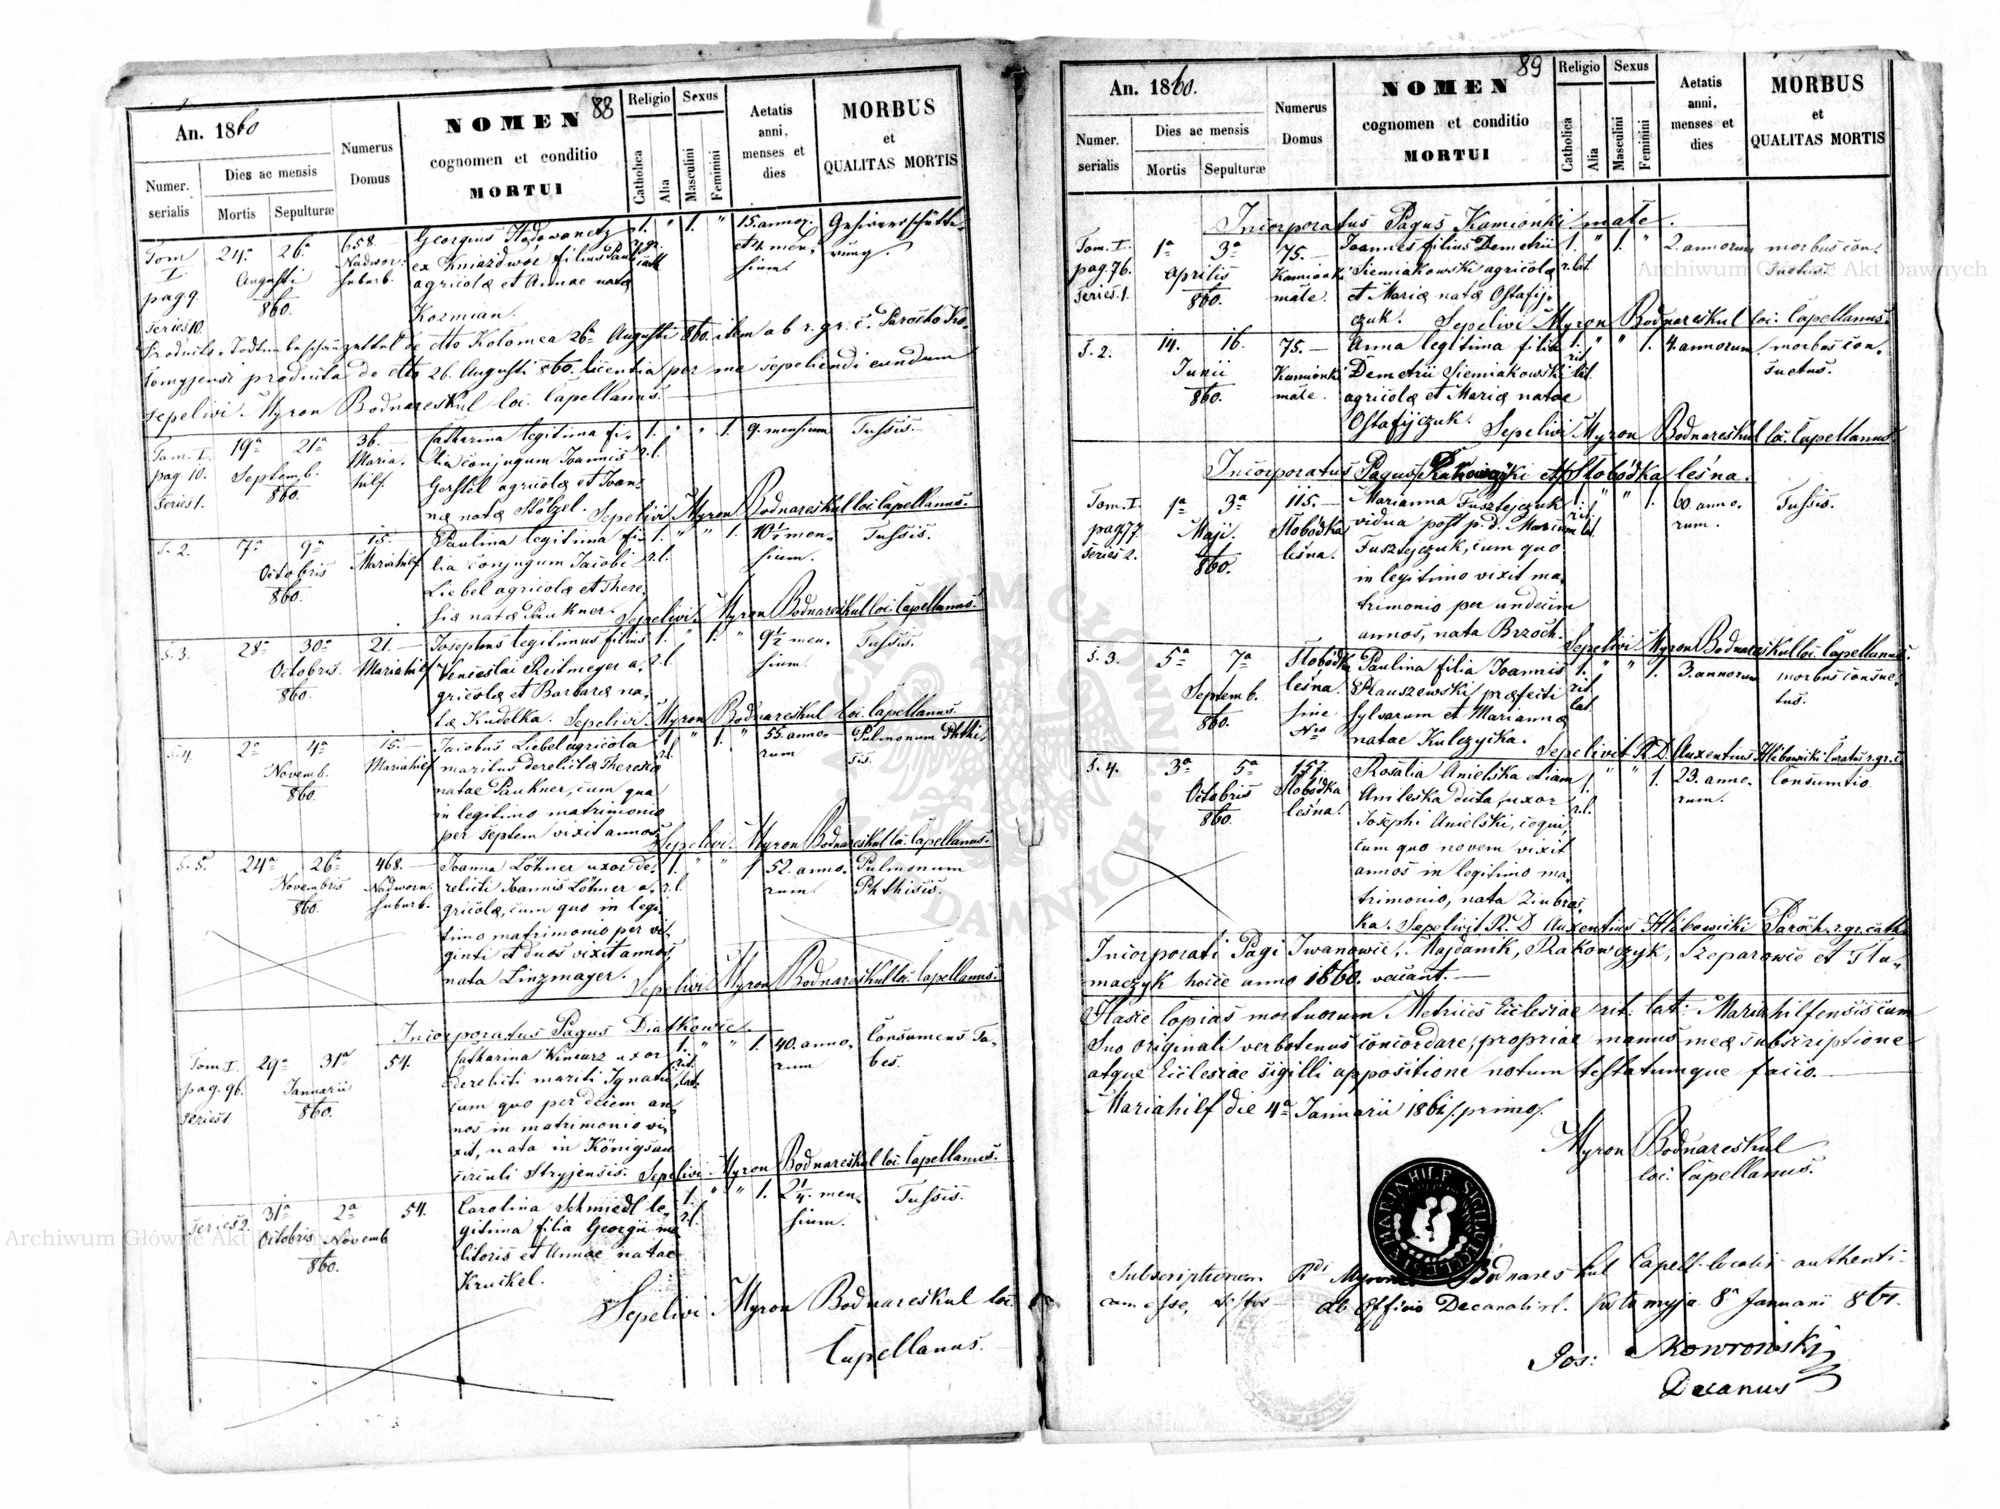 88
An. 1860
Numer. serialis
Dies ac mensis
Mortis
Sepulturæ
Numerus Domus
NOMEN
cognomen et conditio
MORTUI
Religio
Catholica
Alia
Sexus
Masculini
Feminini
Aetatis anni, menses et dies
MORBUS
et
QUALITAS MORTIS
Tom I. pag 9. series 10.
24a 26a Augusti 860.
658. Nadwor. suburb.
Georgius
ex Kniazdwor filius Pauli
agricolæ et Annae natæ
Kozmian.
1. " 1. "
15. annor. et 4. mensium.
Gehirnerschütterung.
Producto Todtenbeschauzettel de dtto Kolomea 26a Augusti 860. item a b r. gr. c. Parocho Ko-
lomyjensi producta de dtto 26. Augusti 860. licentia per me sepeliendi eundum
sepelivi. Myron Bodnareskul loc. Capellanus.
Tom. I. pag 10. series 1.
19a 21a Septemb. 860.
36. Mariahilf.
Catharina legitima fi-
lia conjugum Joannis
Gerstel agricolæ et Joan-
næ natæ Stölzel. Sepelivi Myron Bodnareskul loc. Capellanus.
1. r.l. " " 1.
9. mensium
Tussis.
S. 2.
7a 9a Octobris 860.
15. Mariahilf
Paulina legitima fi-
lia conjugum Jacobi
Liebel agricolæ et There-
siæ natæ Paukner. Sepelivi. Myron Bodnareskul loc. Capellanus.
1. r.l. " " 1.
10½ mensium.
Tussis.
S. 3.
28a 30a Octobris. 860.
21. Mariahilf
Josephus legitimus filius
Venceslai Reitmeyer a-
gricolæ et Barbaræ na-
tæ Kudelka. Sepelivi. Myron Bodnareskul loc. Capellanus.
1. r.l. " 1. "
9½ mensium.
Tussis.
S. 4.
2a 4a Novemb. 860.
15. Mariahilf
Jacobus Liebel agricola
maritus derelictæ Theresiæ
natae Paukner, cum qua
in legitimo matrimonio
per septem vixit annos. Sepelivi. Myron Bodnareskul loc. Capellanus.
1. r.l. " 1. "
55. annorum
Pulmonum Phthisis.
S. 5.
24a 26a Novembris 860.
468. Nadworn. suburb.
Joanna Löhner uxor de-
relicti Joannis Löhner a-
gricolæ, cum quo in legi-
timo matrimonio per vi-
ginti et duos vixit annos,
nata Linzmayer. Sepelivi Myron Bodnareskul loc. Capellanus.
1. r.l. " " 1
52. annorum.
Pulmonum Phthisis.
Incorporatus Pagus Diatkowce.
Tom. I. pag. 96. series 1
29a 31a Januarii 860.
54.
Catharina Kincarz uxor
derelicti mariti Ignatii
cum quo per decem an-
nos in matrimonio vi-
xit, nata in Königsau
circuli Stryjensis. Sepelivi. Myron Bodnareskul loc. Capellanus.
1. rit. lat. " " 1.
40. annorum
Consumens Tabes.
series 2.
31a Octobris 2a Novemb 860.
54.
Carolina Schmiedl le-
gitima filia Georgii mo-
litoris et Annae natae
Kruckel.
1. r.l. " " 1.
2¼. mensium.
Tussis.
Sepelivi Myron Bodnareskul loc.
Capellanus.
89
An. 1860.
Numer. serialis
Dies ac mensis
Mortis
Sepulturæ
Numerus Domus
NOMEN
cognomen et conditio
MORTUI
Religio
Catholica
Alia
Sexus
Masculini
Feminini
Aetatis anni, menses et dies
MORBUS
et
QUALITAS MORTIS
Incorporatus Pagus Kamionki małe.
Tom. I. pag. 76. series. 1.
1a 3a Aprilis 860.
75. Kamionki małe.
Joannes filius Demetrii
Siemiakowski agricolæ
et Mariæ natæ Ostafij-
czuk. Sepelivi Myron Bodnareskul loc. Capellanus.
1. r. lat. " 1. "
2. annorum
morbus consuetus.
S. 2.
14. 16. Junii 860.
75. Kamionki małe.
Anna legitima filia
Demetrii Siemiakowski
agricolæ et Mariæ natae
Ostafijczuk. Sepelivi Myron Bodnareskul loc. Capellanus
1. rit. lat. " " 1.
4. annorum.
morbus consuetus.
Incorporatus Pagus Rakowczyki et Słobódka leśna.
Tom. I. pag. 77. series 2.
1a 3a Maji. 860.
115. Słobódka leśna.
Marianna Fusztejczuk
vidua post p. d. Marium
Fusztejczuk, cum quo
in legitimo vixit ma-
trimonio per undecim
annos, nata Brzoch. Sepelivi Myron Bodnareskul loc. Capellanus.
1. rit. lat. " " 1.
60. annorum.
Tussis.
S. 3.
5a 7a Septemb. 860.
Słobódka leśna. sine Nro
Paulina filia Joannis
Plauszewski præfecti
sylvarum et Mariannæ
natae Kulczycka. Sepelivit R. D. Auxentius Hlibowicki Curatus r. gr. c.
1. rit. lat " " 1.
3. annorum
morbus consuetus.
S. 4.
3a 5a Octobris 860.
157. Słobódka leśna.
Rosalia Anielska etiam
Amileska dicta, uxor
Josephi Anielski, coqui,
cum quo novem vixit
annos in legitimo ma-
trimonio, nata
Sepelivit R. D Auxentius Hlibowicki Paroch. r. gr. cath.
1. r.l. " " 1.
29. annorum.
Consumtio
Incorporati Pagi Iwanowce, Majdanik, Rakowczyk, Szeparowce et Tłu-
maczyk hocce anno 1860. vacant.
Hasce copias mortuorum Metrices Ecclesiae rit. lat. Mariahilfensis cum
suo originali verbotenus concordare, propriae manus meæ subscriptione
atque Ecclesiae sigilli appositione notum testatumque facio.
Mariahilf die 4a Januarii 1861 /:primo/.
Myron Bodnareskul
loc. Capellanus.
Subscriptionem Rdi Myronis Bodnareskul Capell. localis authenti-
cam esse, testor
ab Officio Decanali r. l. Kołomyja 8a Januarii 861.
Jos: Skowroński
Decanus
Archiwum Główne Akt Dawnych
Archiwum Główne Akt Dawnych
ARCHIWUM GŁÓWNE AKT DAWNYCH